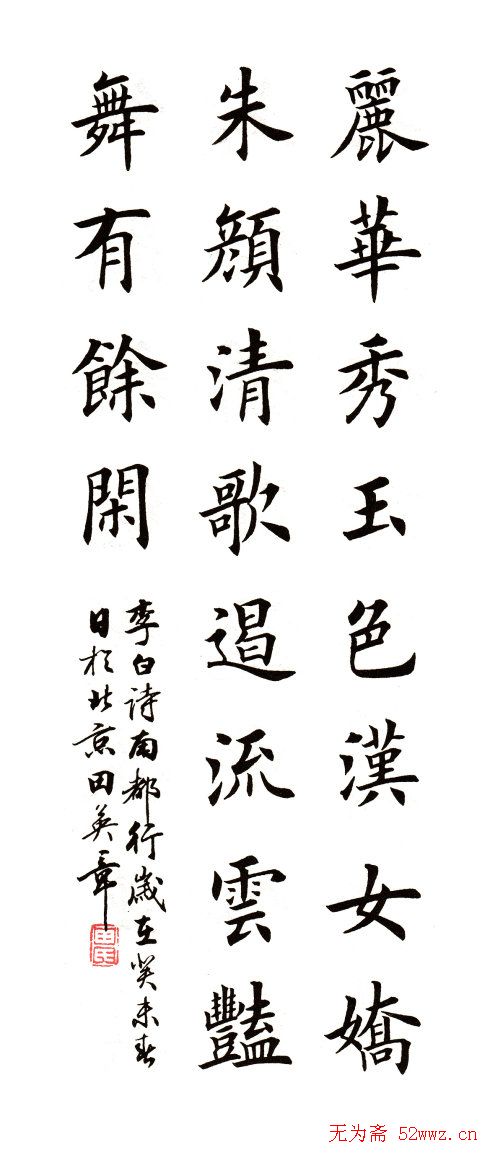 麗華秀玉色漢女嬌
朱顏清歌遏流雲豔
舞有餘閑
李白诗南都行歲在癸未春
日於北京田英章
田氏
无为斋 52wwz.cn